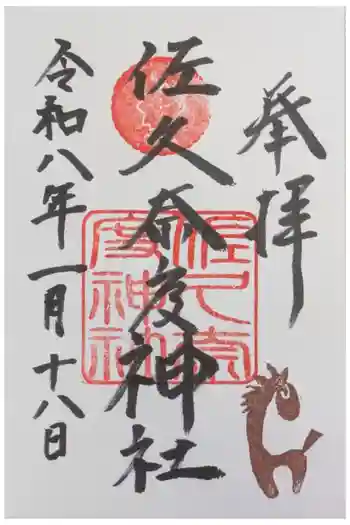 奉拝
佐久奈度神社
令和八年一月十八日
佐久奈
度神社